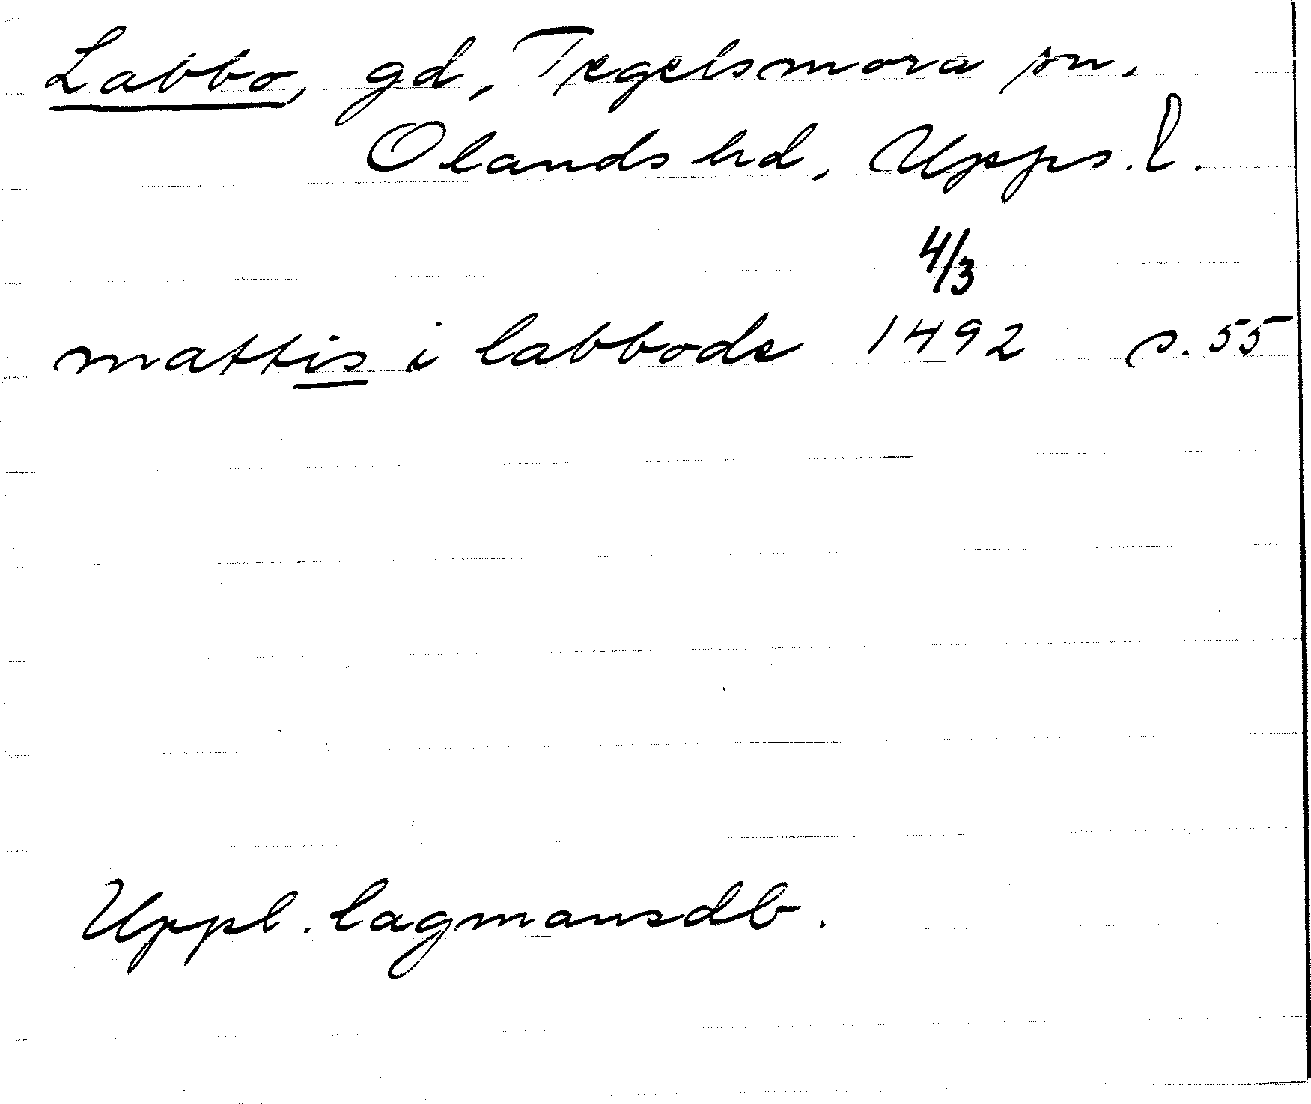 Labbo, gd, Tegelsmora sn.
Olands hd, Upps. l.
4/3
mattis i labbode 1492 s. 55
Uppl. lagmansdb.